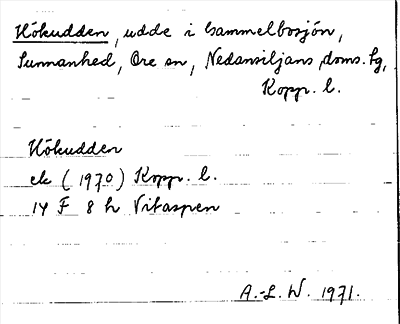 Hökudden, udde i Gammelbosjön,
Sunnanhed, Ore sn, Nedansiljans doms. hg,
Kopp. l.
Hökudden
ek (1970) Kopp. l.
14 F 8 h Vitaspen
A.-L. W. 1971.